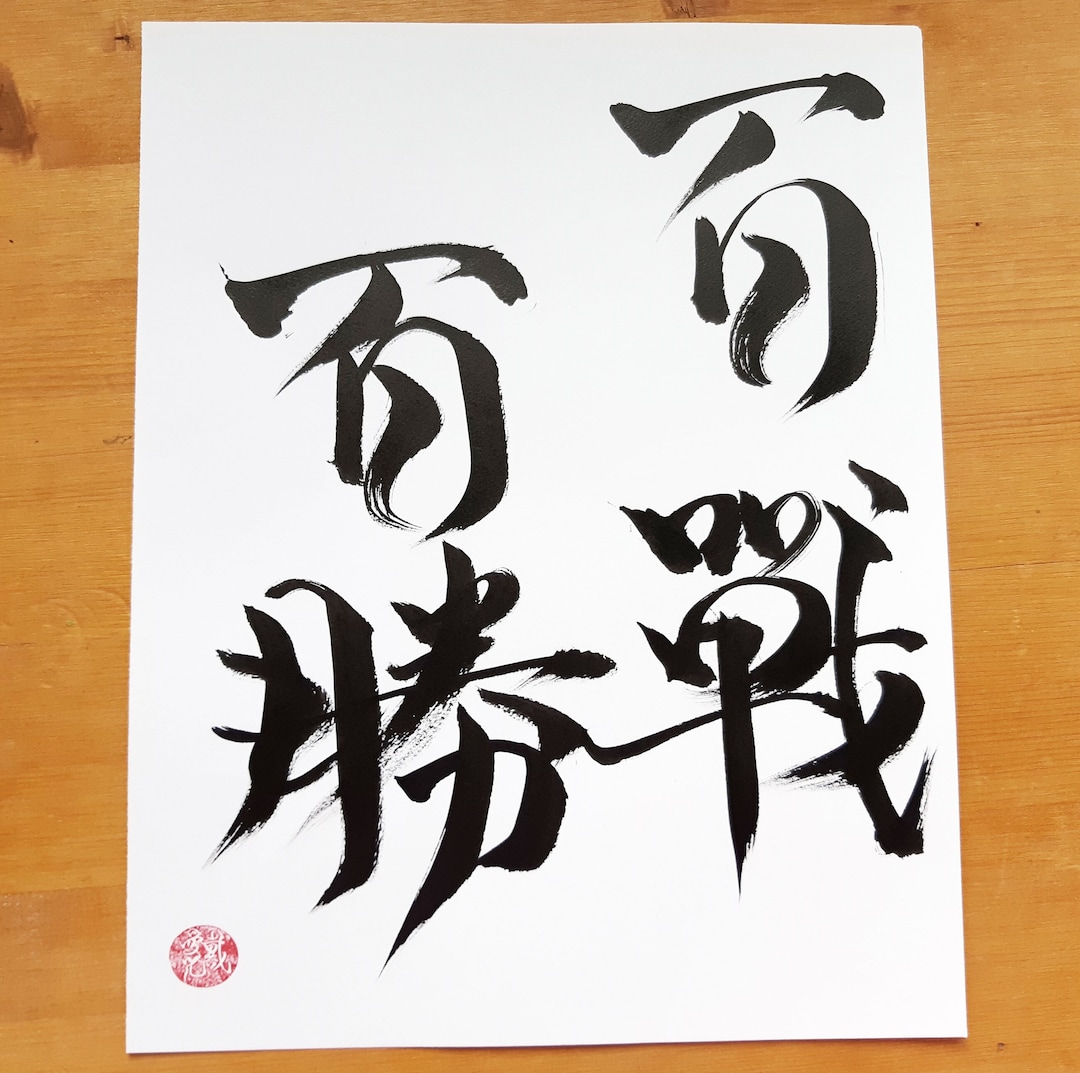 百戰
百勝